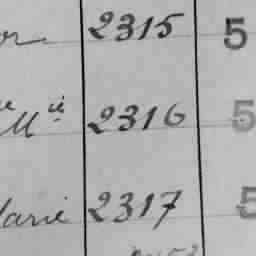 or 2315 5
Mie 2316 5
Marie 2317 5